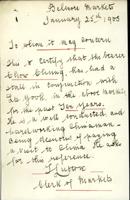 Belmore Markets
January 25th 1903
To whom it may concern
This is to certify that the bearer
Chow Ching, has had a
stall in conjunction with
in the above Markets
for the past Ten Years.
He is a well conducted, and
hardworking Chinaman &
being desirous of paying
a visit to China he asks
for this reference.
Clerk of Markets